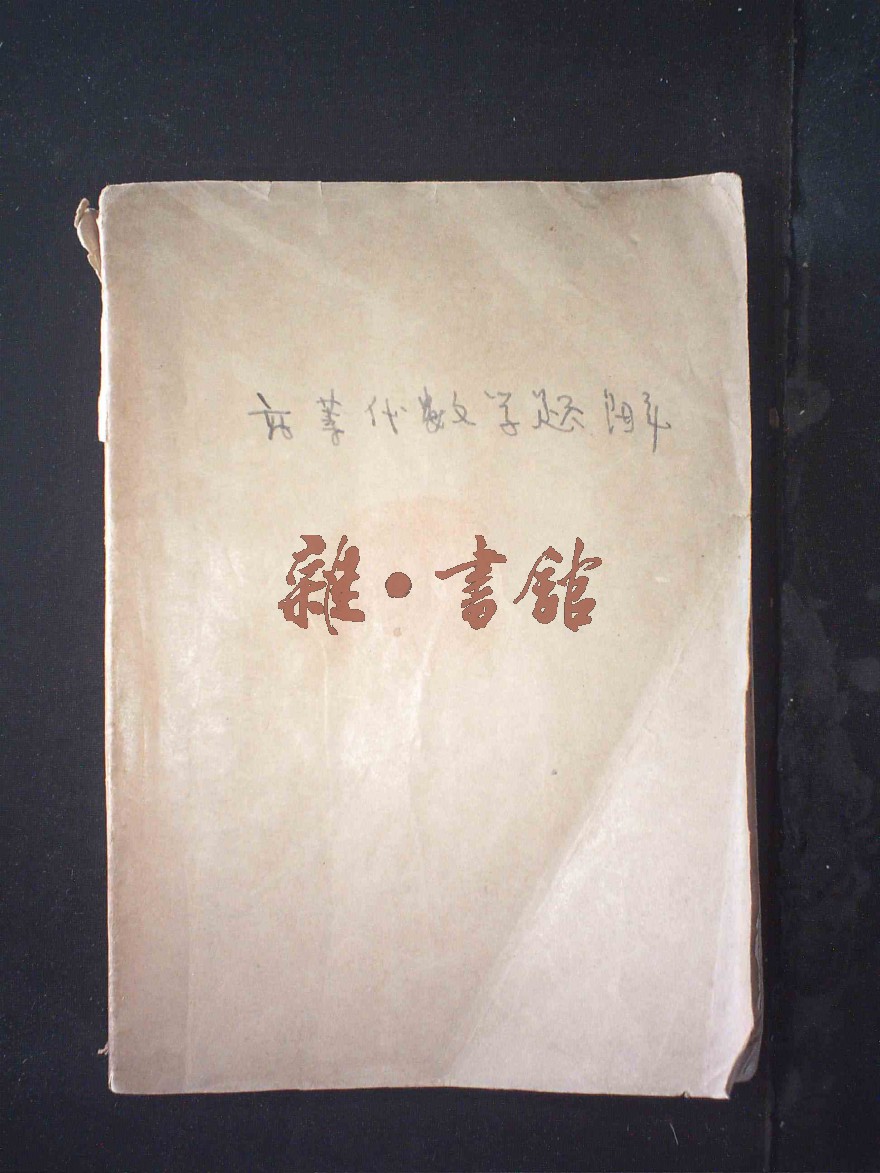 高等代数学题解
雜●書館